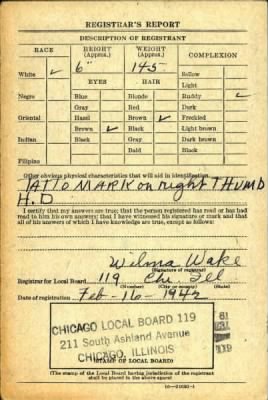 REGISTRAR'S REPORT
DESCRIPTION OF REGISTRANT
RACE HEIGHT (Approx.) WEIGHT (Approx.) COMPLEXION
White ✓ 6" 145 Sallow
EYES HAIR Light
Negro Blue Blonde Ruddy ✓
Gray Red Dark
Oriental Hazel Brown ✓ Freckled
Brown ✓ Black Light brown
Indian Black Gray Dark brown
Bald Black
Filipino
Other obvious physical characteristics that will aid in identification
TATTO MARK on right THUMB
H.D
I certify that my answers are true; that the person registered has read or has had
read to him his own answers; that I have witnessed his signature or mark and that
all of his answers of which I have knowledge are true, except as follows:
Wilma Wake
(Signature of registrar)
Registrar for Local Board 119 Chi. Ill
(Number) (City or county) (State)
Date of registration Feb-16-1942
CHICAGO LOCAL BOARD 119
211 South Ashland Avenue
CHICAGO, ILLINOIS
(STAMP OF LOCAL BOARD)
(The stamp of the Local Board having jurisdiction of the registrant
shall be placed in the above space)